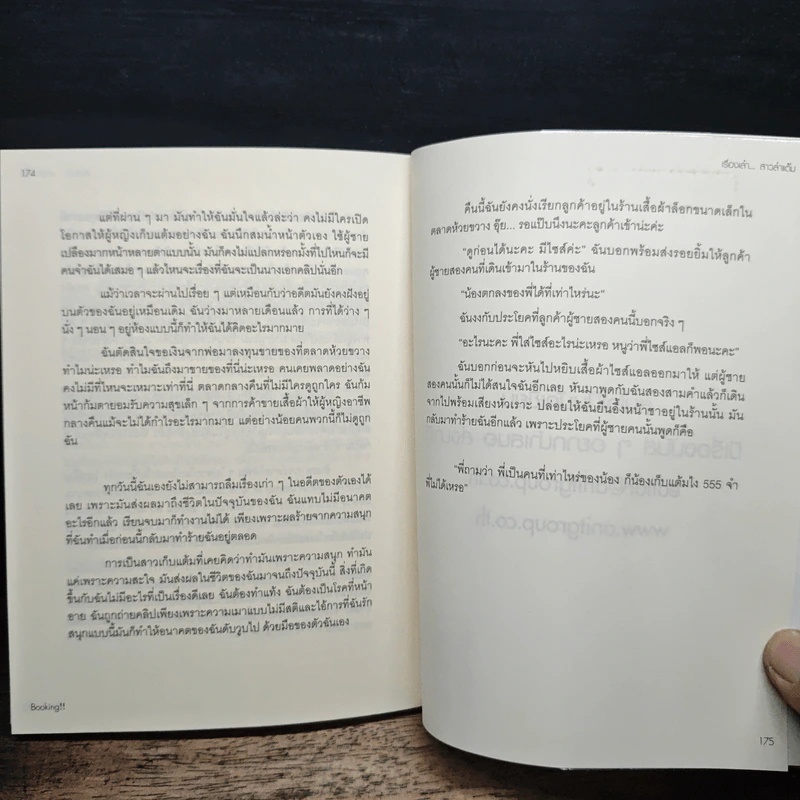 174
แต่ที่ผ่าน ๆ มา มันทำให้ฉันมั่นใจแล้วล่ะว่า คงไม่มีใครเปิด
โอกาสให้ผู้หญิงเก็บแต้มอย่างฉัน ฉันนึกสมน้ำหน้าตัวเอง ใช้ผู้ชาย
เปลืองมากหน้าหลายตาแบบนั้น มันก็คงไม่แปลกหรอกมั้งที่ไปไหนก็จะมี
คนจำฉันได้เสมอ ๆ แล้วไหนจะเรื่องที่ฉันจะเป็นนางเอกคลิปนั่นอีก
แม้ว่าเวลาจะผ่านไปเรื่อย ๆ แต่เหมือนกับว่าอดีตมันยังคงฝังอยู่
บนตัวของฉันอยู่เหมือนเดิม ฉันว่างมาหลายเดือนแล้ว การที่ได้ว่าง ๆ
นั่ง ๆ นอน ๆ อยู่ห้องแบบนี้ก็ทำให้ฉันได้คิดอะไรมากมาย
ฉันตัดสินใจขอเงินจากพ่อมาลงทุนขายของที่ตลาดห้วยขวาง
ทำไมน่ะเหรอ ทำไมฉันถึงมาขายของที่นี่น่ะเหรอ คนเคยพลาดอย่างฉัน
คงไม่มีที่ไหนจะเหมาะเท่าที่นี่ ตลาดกลางคืนที่ไม่มีใครดูถูกใคร ฉันก้ม
หน้าก้มตายอมรับความสุขเล็ก ๆ จากการค้าขายเสื้อผ้าให้ผู้หญิงอาชีพ
กลางคืนแม้จะไม่ได้กำไรอะไรมากมาย แต่อย่างน้อยคนพวกนี้ก็ไม่ดูถูก
ฉัน
ทุกวันนี้ฉันเองยังไม่สามารถลืมเรื่องเก่า ๆ ในอดีตของตัวเองได้
เลย เพราะมันส่งผลมาถึงชีวิตในปัจจุบันของฉัน ฉันแทบไม่มีอนาคต
อะไรอีกแล้ว เรียนจบมาก็ทำงานไม่ได้ เพียงเพราะผลร้ายจากความสนุก
ที่ฉันทำเมื่อก่อนนี้กลับมาทำร้ายฉันอยู่ตลอด
การเป็นสาวเก็บแต้มที่เคยคิดว่าทำมันเพราะความสนุก ทำมัน
แค่เพราะความสะใจ มันส่งผลในชีวิตของฉันมาจนถึงปัจจุบันนี้ สิ่งที่เกิด
ขึ้นกับฉันไม่มีอะไรที่เป็นเรื่องดีเลย ฉันต้องทำแท้ง ฉันต้องเป็นโรคที่หน้า
อาย ฉันถูกถ่ายคลิปเพียงเพราะความเมาแบบไม่มีสติและไอ้การที่ฉันรัก
สนุกแบบนี้มันก็ทำให้อนาคตของฉันดับวูบไป ด้วยมือของตัวฉันเอง
Booking!!
เรื่องเล่า... สาวล่าแต้ม
คืนนี้ฉันยังคงนั่งเรียกลูกค้าอยู่ในร้านเสื้อผ้าล็อกขนาดเล็กใน
ตลาดห้วยขวาง อุ๊ย... รอแป๊บนึงนะคะลูกค้าเข้าน่ะค่ะ
"ดูก่อนได้นะคะ มีไซส์ค่ะ" ฉันบอกพร้อมส่งรอยยิ้มให้ลูกค้า
ผู้ชายสองคนที่เดินเข้ามาในร้านของฉัน
"น้องตกลงของพี่ได้ที่เท่าไหร่นะ"
ฉันงงกับประโยคที่ลูกค้าผู้ชายสองคนนี้บอกจริง ๆ
"อะไรนะคะ พี่ใส่ไซส์อะไรน่ะเหรอ หนูว่าพี่ไซส์แอลก็พอนะคะ"
ฉันบอกก่อนจะหันไปหยิบเสื้อผ้าไซส์แอลออกมาให้ แต่ผู้ชาย
สองคนนั้นก็ไม่ได้สนใจฉันอีกเลย หันมาพูดกับฉันสองสามคำแล้วก็เดิน
จากไปพร้อมเสียงหัวเราะ ปล่อยให้ฉันยืนอึ้งหน้าชาอยู่ในร้านนั้น มัน
กลับมาทำร้ายฉันอีกแล้ว เพราะประโยคที่ผู้ชายคนนั้นพูดก็คือ
"พี่ถามว่า พี่เป็นคนที่เท่าไหร่ของน้อง ก็น้องเก็บแต้มไง 555 จำ
พี่ไม่ได้เหรอ"
175